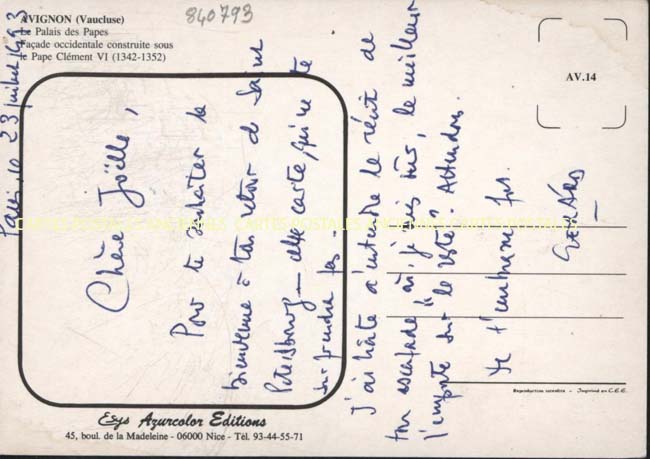 AVIGNON (Vaucluse)
Le Palais des Papes
Façade occidentale construite sous
le Pape Clément VI (1342-1352)
840793
AV.14
Paris, le 23 juillet 1993
Chère Joëlle,
Pour te souhaiter la
bienvenue à ton retour de Saint
Petersbourg — cette carte, qui ne te
surprendra pas —
J'ai hâte d'entendre le récit de
ton escapade où, je suis sûr, le meilleur
l'emporte sur le reste. Attendons.
Je t'embrasse fort.
GERARD
CARTES POSTALES ANCIENNES CARTES POSTALES
Reproduction interdite - Imprimé en C.E.E.
Esys Azurcolor Editions
45, boul. de la Madeleine - 06000 Nice - Tél. 93-44-55-71